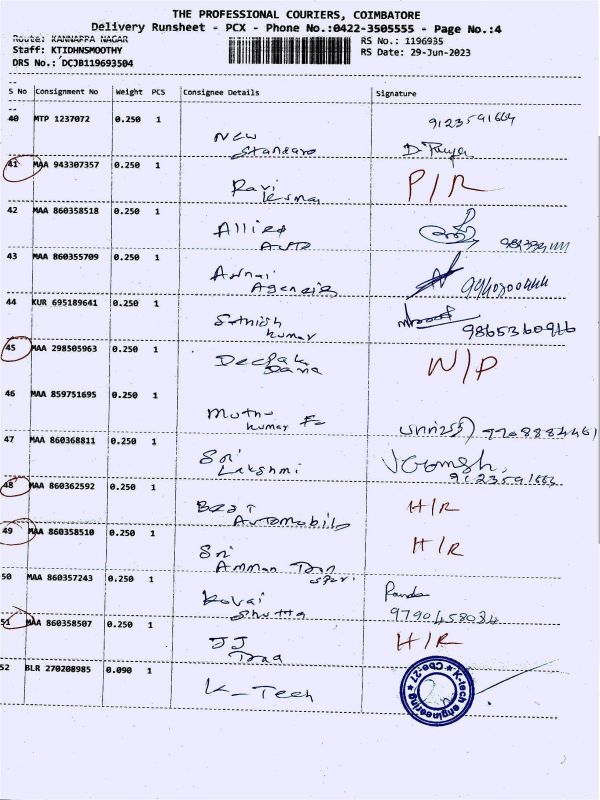 THE PROFESSIONAL COURIERS, COIMBATORE
Delivery Runsheet - PCX - Phone No.:0422-3505555 - Page No.:4
Route: KANNAPPA NAGAR
RS No.: 1196935
Staff: KTIDHNSMOOTHY
RS Date: 29-Jun-2023
DRS No.: DCJB119693504
S No Consignment No Weight PCS Consignee Details Signature
40 MTP 1237072 0.250 1 9123591664
New
Standard
41 MAA 943307357 0.250 1 P/R
Ravi
Kumar
42 MAA 860358518 0.250 1
Allied
Auto
43 MAA 860355709 0.250 1
Annai
Agencies
44 KUR 695189641 0.250 1
Sathish
Kumar 9865360966
45 MAA 298505963 0.250 1 N/P
Deepak
46 MAA 859751695 0.250 1
Muthu
Kumar
47 MAA 860368811 0.250 1
Sri
Lakshmi
48 MAA 860362592 0.250 1 H/R
Best
Automobile
49 MAA 860358510 0.250 1 H/R
Sri
Amman
50 MAA 860357243 0.250 1
Kovai
9790458034
51 MAA 860358507 0.250 1 H/R
JJ
52 BLR 270208985 0.090 1
K-Tech
K-tech engineering ★ Cbe-27 ★